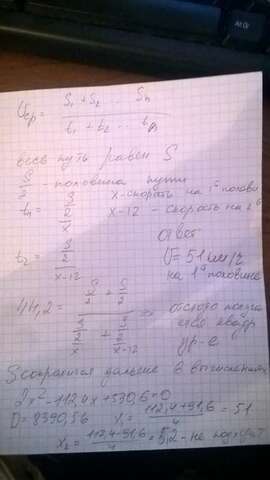 Uср = S₁ + S₂ ... Sn / t₁ + t₂ ... tn
весь путь равен S
S/2 - половина пути
t₁ = S/2 / x x - скорость на 1й полови
x-12 - скорость на 2й
t₂ = S/2 / x-12
ответ
U = 51 км/ч
на 1й половине
44,2 = S/2 + S/2 / S/2 / x + S/2 / x-12 =>
отсюда
квадр
ур-е
S сократится дальше в вычислениях
2x² - 112,4x + 530,6 = 0
D = 8390,56 x₁ = 112,4 + 91,6 / 4 = 51
x₂ = 112,4 - 91,6 / 4 = 5,2 - не подходит